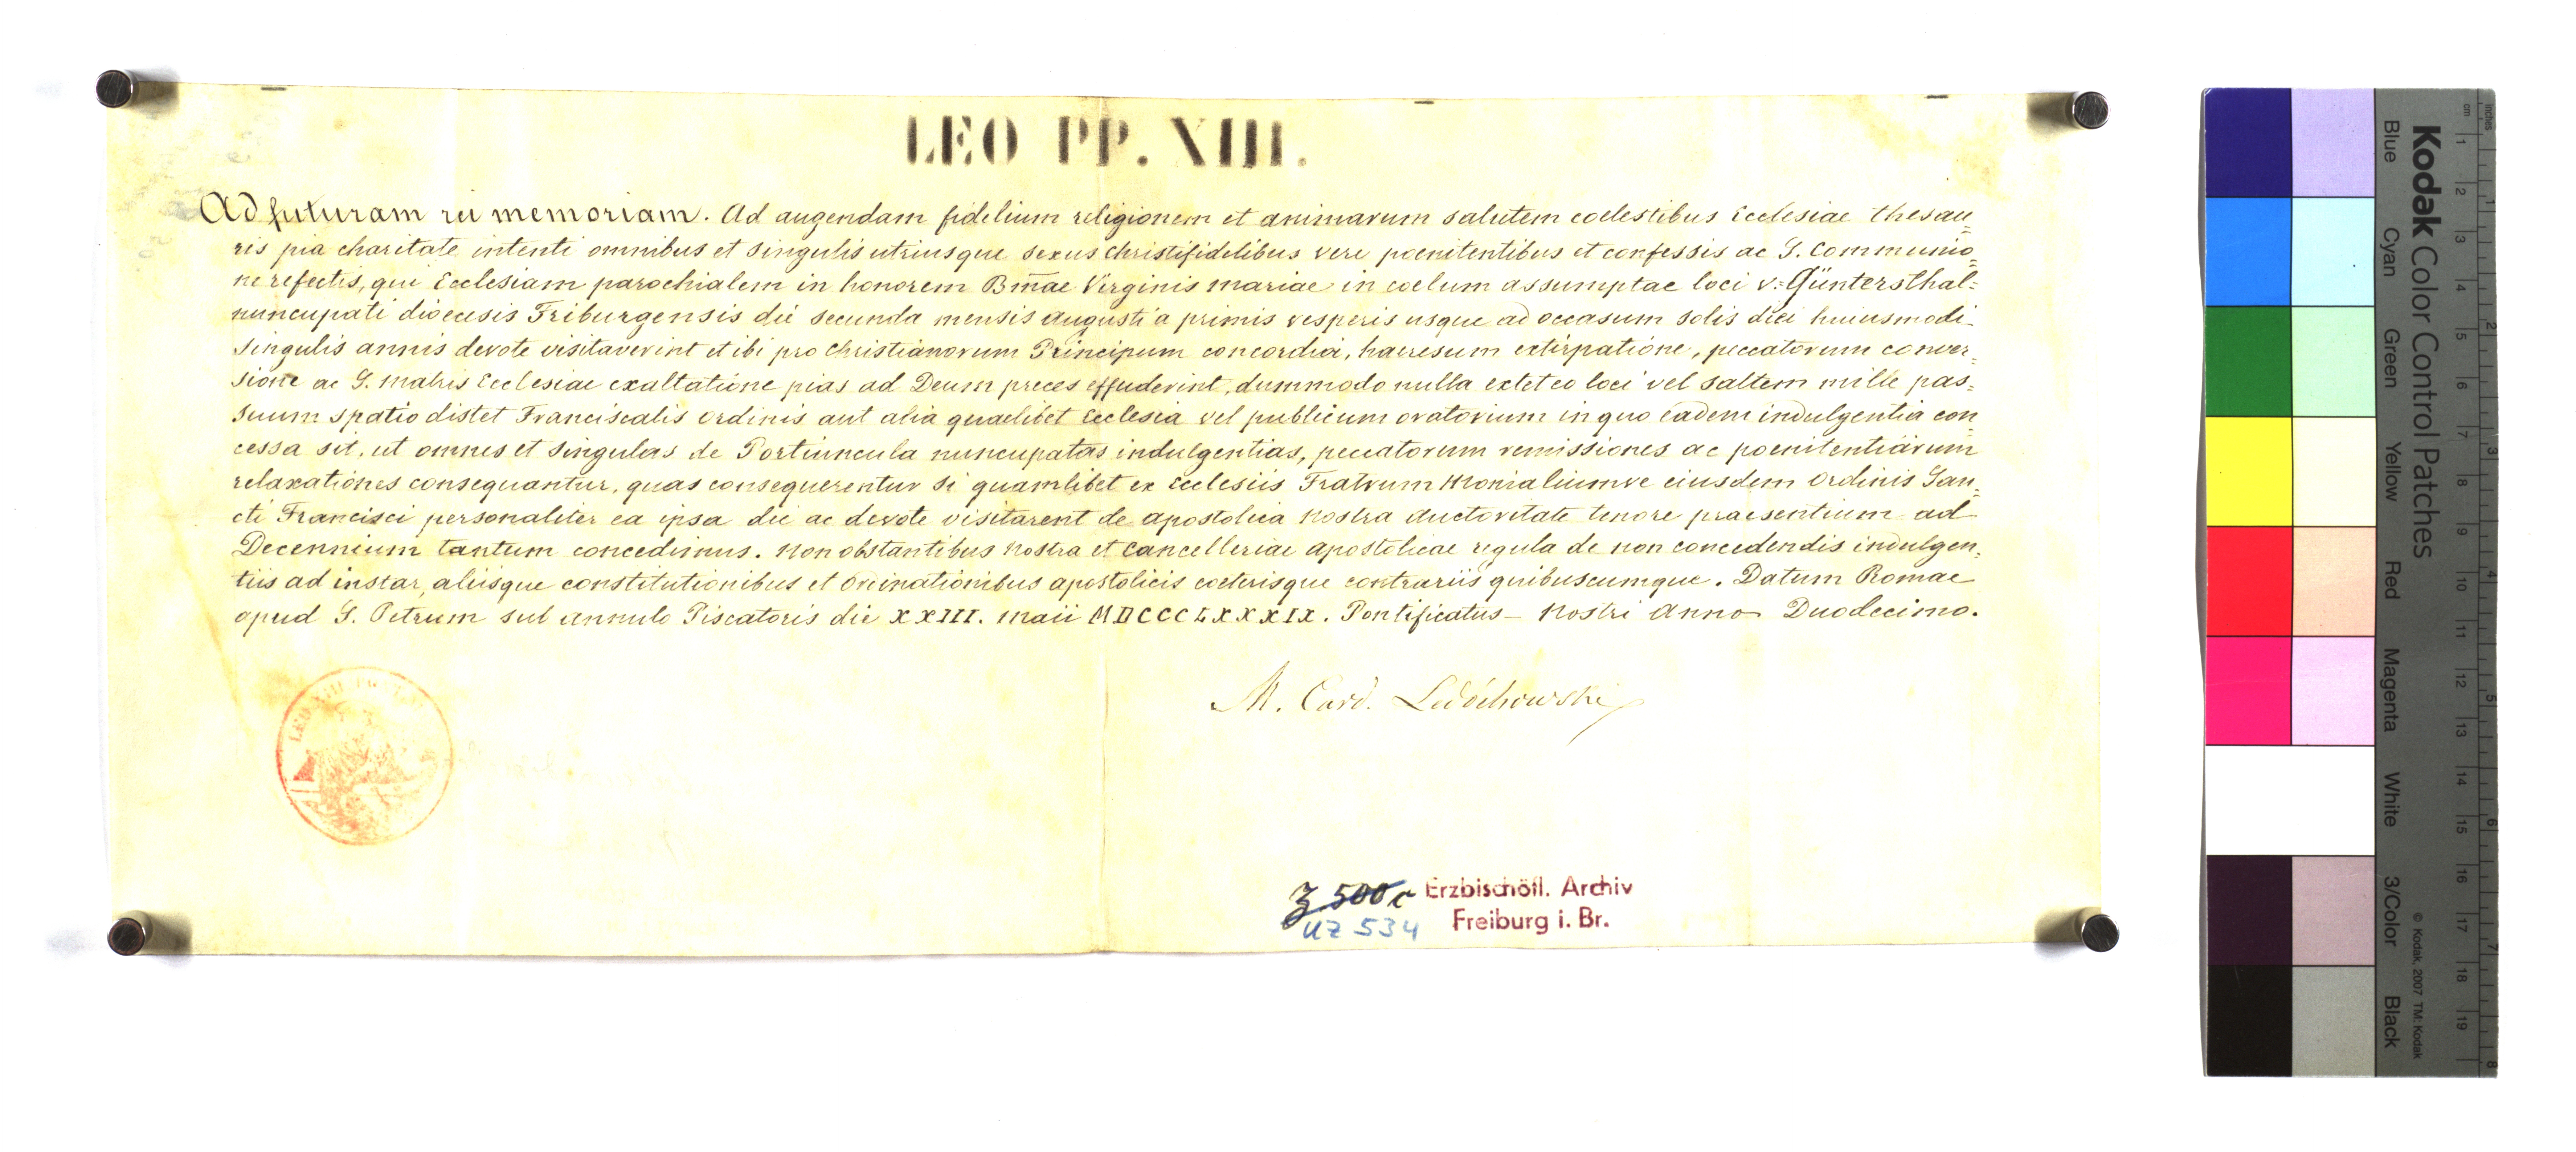 LEO PP. XIII.
Ad futuram rei memoriam. Ad augendam fidelium religionem et animarum salutem coelestibus Ecclesiae thesau=
ris pia charitate intenti omnibus et singulis utriusque sexus Christifidelibus vere poenitentibus et confessis ac S. Communio=
ne refectis, qui Ecclesiam parochialem in honorem Bm̄ae Virginis Mariae in coelum assumptae loci v: Güntersthal=
nuncupati dioecesis Friburgensis die secunda mensis Augusti a primis vesperis usque ad occasum solis diei huiusmodi
singulis annis devote visitaverint et ibi pro Christianorum Principum concordia, haeresum extirpatione, peccatorum conver=
sione ac S. Matris Ecclesiae exaltatione pias ad Deum preces effuderint, dummodo nulla extet eo loci vel saltem mille pas=
suum spatio distet Franciscalis Ordinis aut alia quaelibet Ecclesia vel publicum oratorium in quo eadem indulgentia con=
cessa sit, ut omnes et singulas de Portiuncula nuncupatas indulgentias, peccatorum remissiones ac poenitentiarum
relaxationes consequantur, quas consequerentur si quamlibet ex Ecclesiis Fratrum Monialiumve eiusdem Ordinis San=
cti Francisci personaliter ea ipsa die ac devote visitarent de apostolica Nostra auctoritate tenore praesentium ad
Decennium tantum concedimus. Non obstantibus Nostra et Cancelleriae Apostolicae regula de non concedendis indulgen=
tiis ad instar, aliisque constitutionibus et Ordinationibus apostolicis coeterisque contrariis quibuscumque. Datum Romae
apud S. Petrum sub annulo Piscatoris die XXIII. Maii MDCCCLXXXIX. Pontificatus Nostri Anno Duodecimo.
M. Card. Ledóchowski
LEO XIII
Z 500 c
UZ 534
Erzbischöfl. Archiv
Freiburg i. Br.
Kodak Color Control Patches
Blue Cyan Green Yellow Red Magenta White 3/Color Black
© Kodak, 2007 TM: Kodak
cm 1 2 3 4 5 6 7 8 9 10 11 12 13 14 15 16 17 18 19
inches 1 2 3 4 5 6 7 8